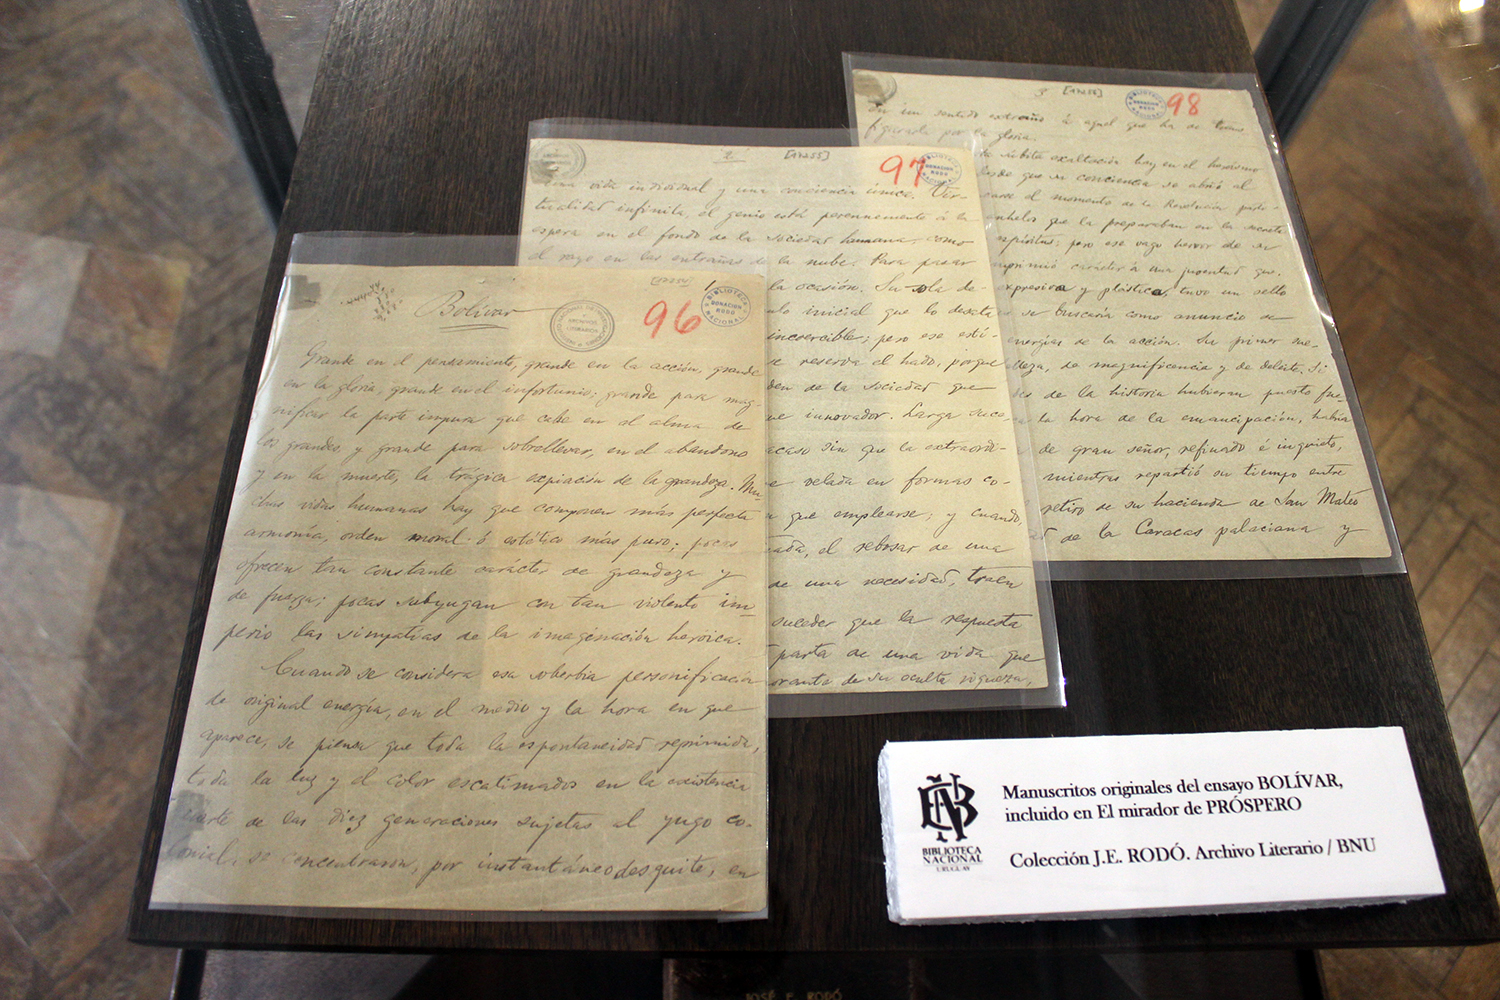 Bolívar
96
BIBLIOTECA
DONACION
RODO
NACIONAL
ARCHIVO
LITERARIO
Grande en el pensamiento, grande en la acción, grande
en la gloria, grande en el infortunio; grande para mag-
nificar la parte impura que cabe en el alma de
los grandes, y grande para sobrellevar, en el abandono
y en la muerte, la trágica expiación de la grandeza. Mu-
chas vidas humanas hay que componen más perfecta
armonía, orden moral ó estético más puro; pocas
ofrecen tan constante carácter de grandeza y
de fuerza; pocas subyugan con tan violento im-
perio las simpatías de la imaginación heroica.
Cuando se considera esa soberbia personificación
de original energía, en el medio y la hora en que
aparece, se piensa que toda la espontaneidad reprimida,
toda la luz y el color escatimados en la existencia
inerte de las diez generaciones sujetas al yugo co-
lonial, se concentraron, por instantáneo desquite, en
2
97
BIBLIOTECA
DONACION
RODO
NACIONAL
una vida individual y una conciencia única. Vir-
tualidad infinita, el genio está perennemente á la
espera en el fondo de la sociedad humana, como
el rayo en las entrañas de la nube. Para pasar
la ocasión. Su sola de-
inicial que lo desata
incoercible; pero ese estí-
se reserva el hado, porque
de la sociedad que
innovador. Larga suce-
acaso sin que la extraordi-
velada en formas co-
que emplearse; y cuando,
el rebosar de una
de una necesidad, traen
suceder que la respuesta
parta de una vida que
de su oculta riqueza,
3
98
BIBLIOTECA
DONACION
RODO
NACIONAL
en un sentido extraño á aquel que ha de
figurada por la gloria.
de súbita exaltación hay en el heroísmo
desde que su conciencia se abrió al
el momento de la Revolución
anhelos que la preparaban en la secreta
espíritus; pero ese vago hervor de su
imprimió carácter á una juventud que,
expresiva y plástica, tuvo un sello
se buscaría como anuncio de
energías de la acción. Su primer sue-
de magnificencia y de deleite. Si
de la historia hubieran puesto fue-
la hora de la emancipación, habría
de gran señor, refinado é inquieto,
mientras repartió su tiempo entre
retiro de su hacienda de San Mateo
de la Caracas palaciana y
BIBLIOTECA
NACIONAL
URUGUAY
Manuscritos originales del ensayo BOLÍVAR,
incluido en El mirador de PRÓSPERO
Colección J.E. RODÓ. Archivo Literario / BNU
JOSÉ E. RODÓ